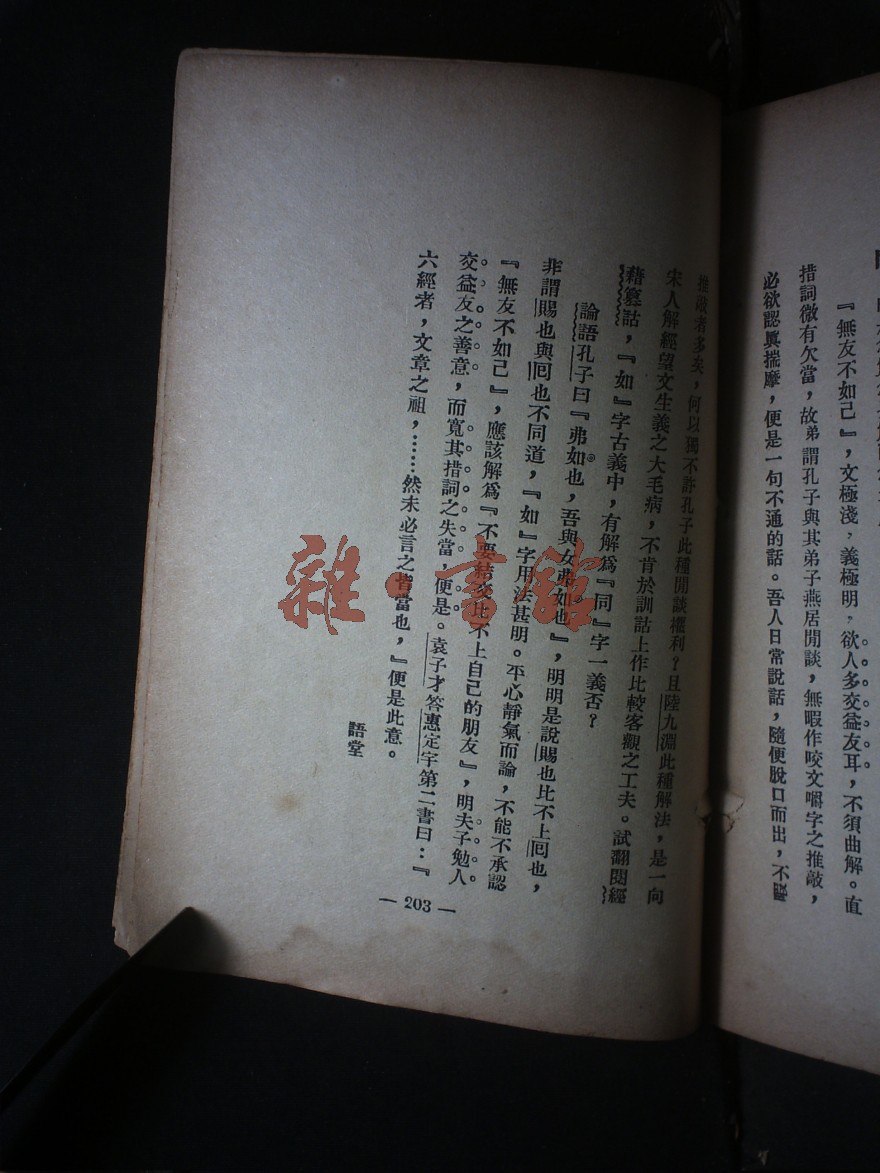 『無友不如己』，文極淺，義極明，欲人多交益友耳，不須曲解。直
措詞微有欠當，故弟謂孔子與其弟子燕居閒談，無暇作咬文嚼字之推敲，
必欲認眞揣摩，便是一句不通的話。吾人日常說話，隨便脫口而出，不
推敲者多矣，何以獨不許孔子此種閒談權利？且陸九淵此種解法，是一向
宋人解經望文生義之大毛病，不肯於訓詁上作比較客觀之工夫。試翻閱經
藉篹詁，『如』字古義中，有解爲『同』字一義否？
論語孔子曰『弗如也，吾與女弗如也』，明明是說賜也比不上囘也，
非謂賜也與囘也不同道，『如』字用法甚明。平心靜氣而論，不能不承認
『無友不如己』，應該解爲『不要結交比不上自己的朋友』，明夫子勉人
交益友之善意，而寬其措詞之失當，便是。袁子才答惠定宇第二書曰：『
六經者，文章之祖，……然未必言之皆當也，』便是此意。
語堂
— 203 —
雜·書館